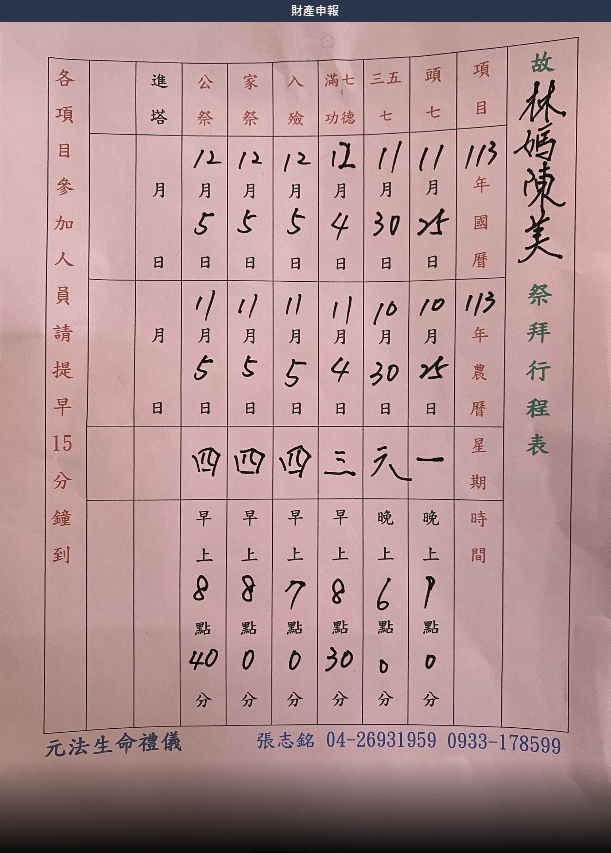 財產申報
故林媽陳美 祭拜行程表
項目 113年國曆 113年農曆 星期 時間
頭七 11月25日 10月25日 一 晚上 點0分
三五七 11月30日 10月30日 六 晚上6點0分
滿七功德 12月4日 11月4日 三 早上8點30分
入殮 12月5日 11月5日 四 早上7點0分
家祭 12月5日 11月5日 四 早上8點0分
公祭 12月5日 11月5日 四 早上8點40分
進塔 月 日 月 日
各項目參加人員請提早15分鐘到
元法生命禮儀 張志銘 04-26931959 0933-178599